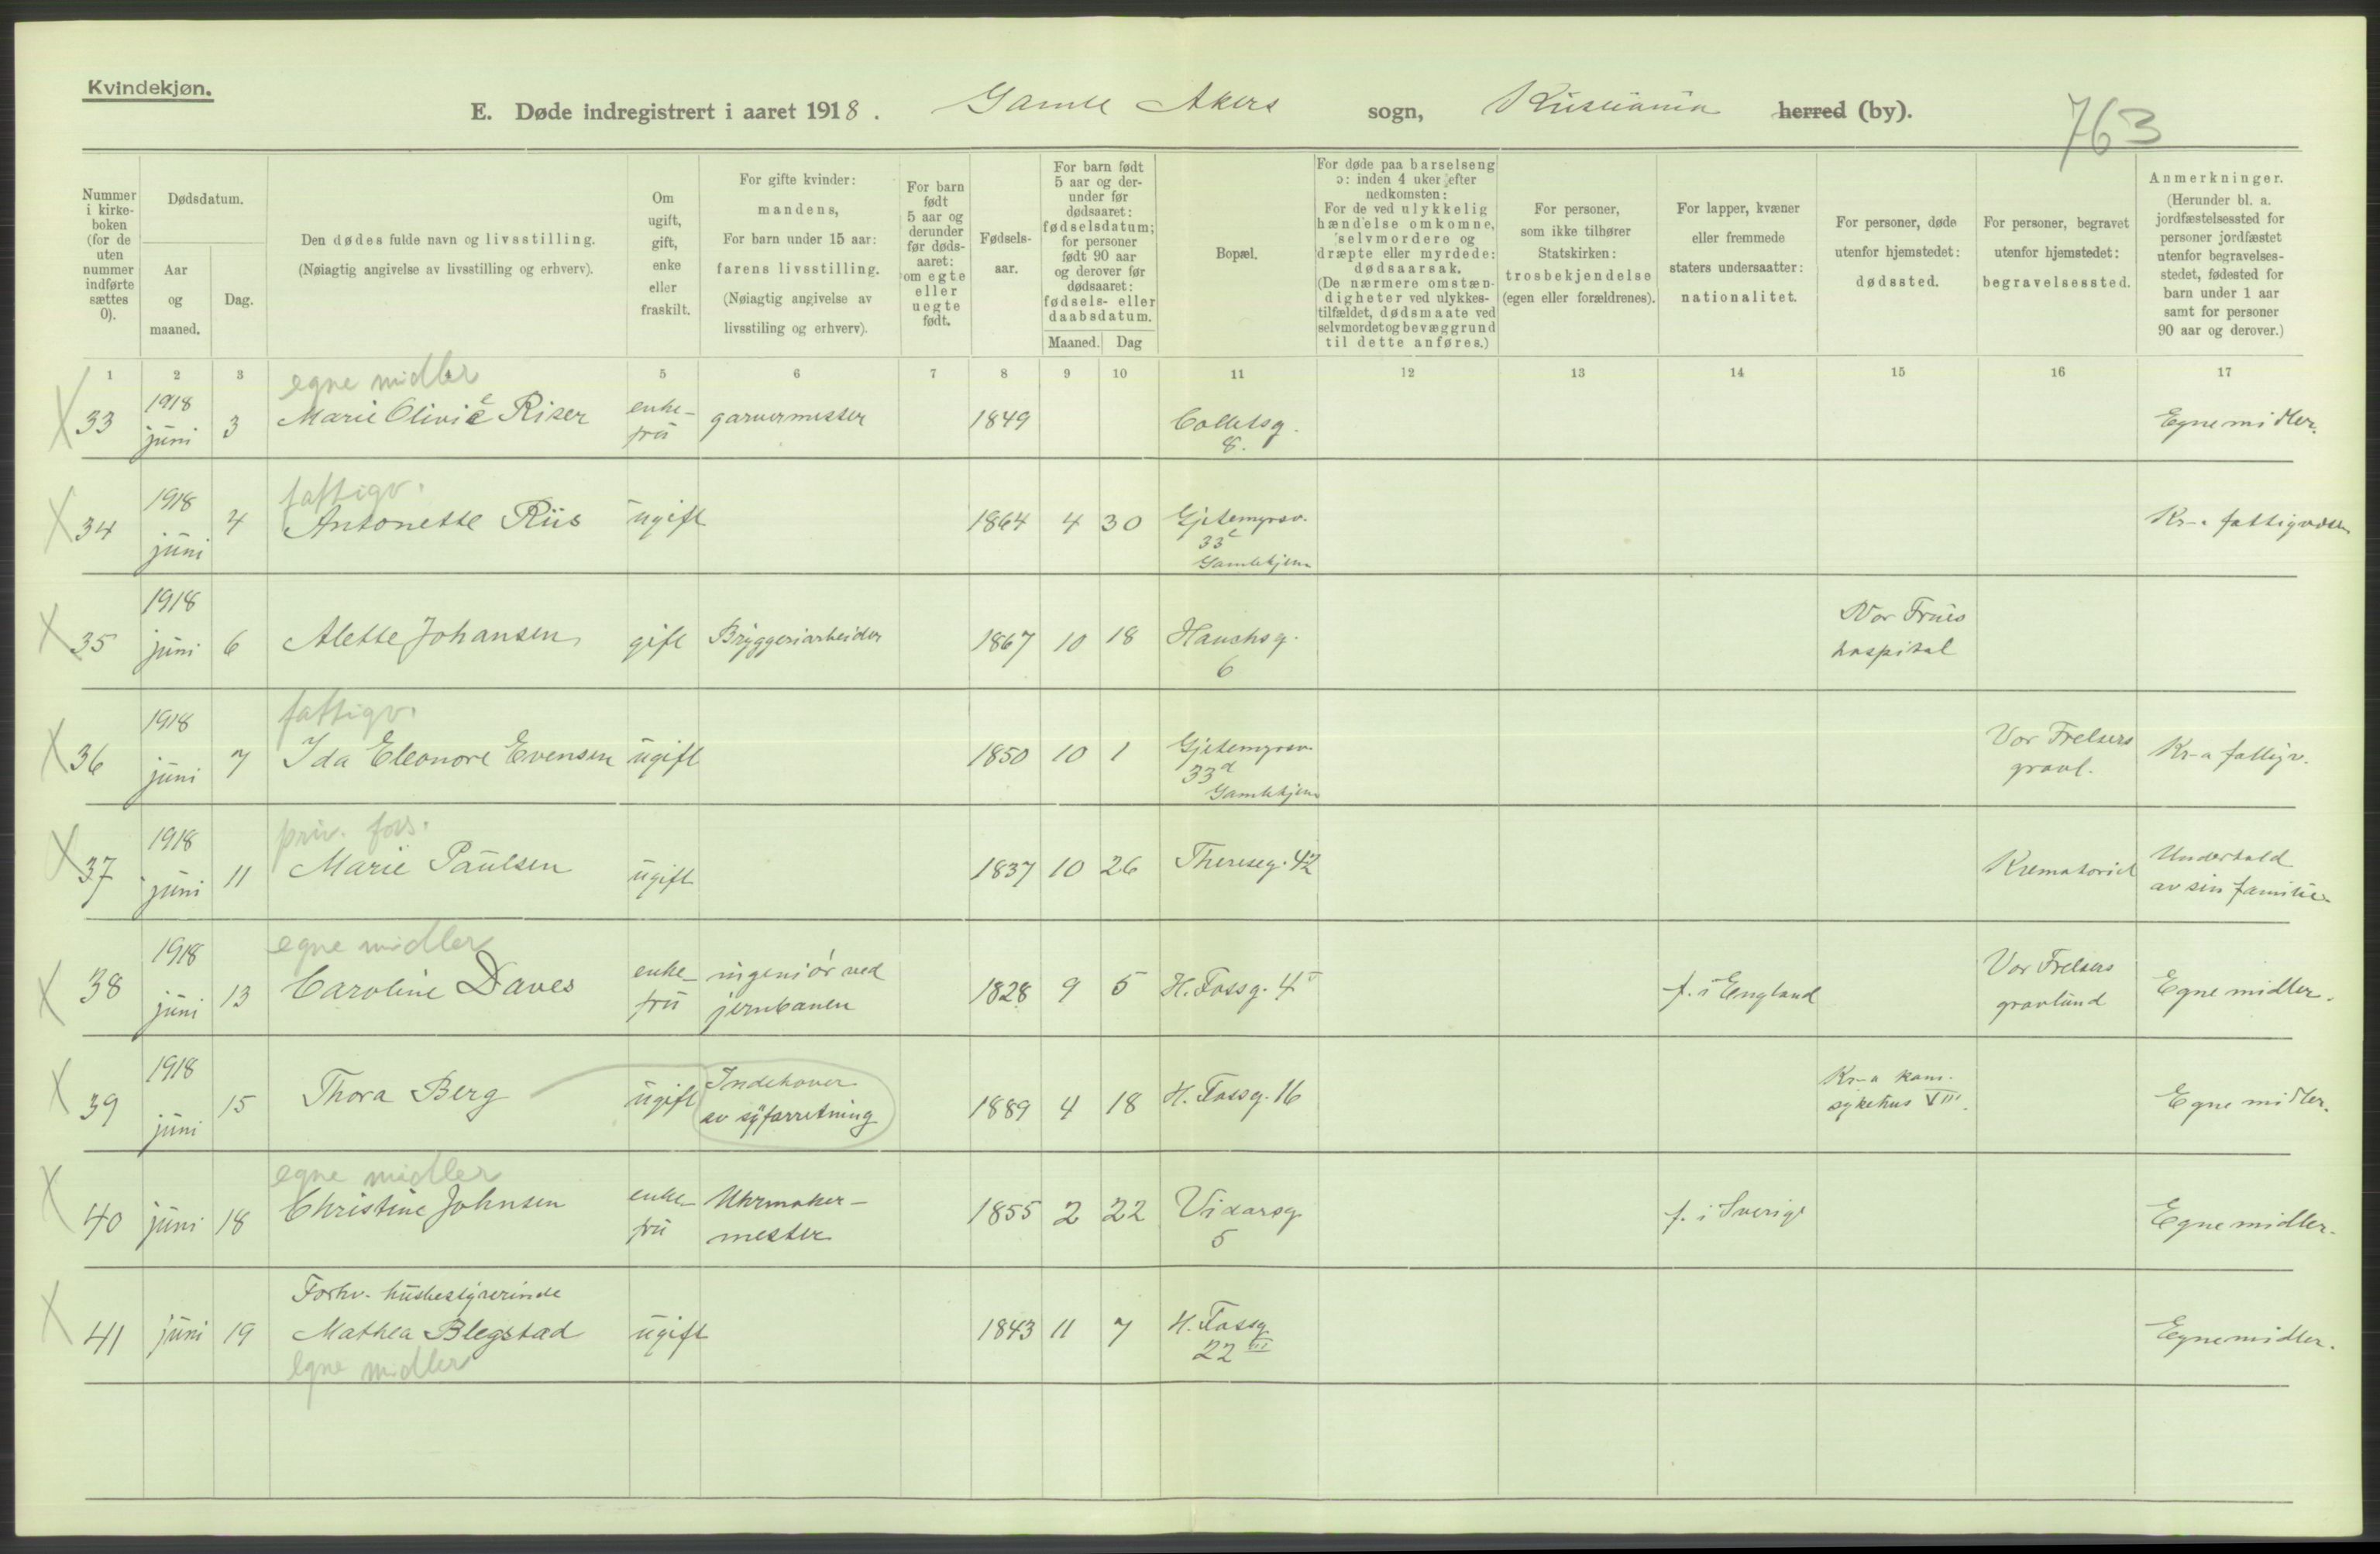 Kvindekjøn.
E. Døde indregistrert i aaret 1918. Gamle Akers sogn, Kristiania herred (by).
763
Nummer i kirke-boken (for de uten nummer indførte sættes 0).
Dødsdatum.
Aar og maaned.
Dag.
Den dødes fulde navn og livsstilling.
(Nøiagtig angivelse av livsstilling og erhverv).
Om ugift, gift, enke eller fraskilt.
For gifte kvinder: mandens,
For barn under 15 aar: farens livsstilling.
(Nøiagtig angivelse av livsstiling og erhverv).
For barn født 5 aar og derunder før døds-aaret: om egte eller uegte født.
Fødsels-aar.
For barn født 5 aar og der-under før dødsaaret: fødselsdatum; for personer født 90 aar og derover før dødsaaret: fødsels- eller daabsdatum.
Maaned. Dag
Bopæl.
For døde paa barselseng ɔ: inden 4 uker efter nedkomsten:
For de ved ulykkelig hændelse omkomne, selvmordere og dræpte eller myrdede: dødsaarsak.
(De nærmere omstæn-digheter ved ulykkes-tilfældet, dødsmaate ved selvmordet og bevæggrund til dette anføres.)
For personer, som ikke tilhører Statskirken: trosbekjendelse (egen eller forældrenes).
For lapper, kvæner eller fremmede staters undersaatter: nationalitet.
For personer, døde utenfor hjemstedet: dødssted.
For personer, begravet utenfor hjemstedet: begravelsessted.
Anmerkninger.
(Herunder bl. a. jordfæstelsessted for personer jordfæstet utenfor begravelses-stedet, fødested for barn under 1 aar samt for personer 90 aar og derover.)
1 2 3 5 6 7 8 9 10 11 12 13 14 15 16 17
egne midler
33 1918 juni 3 Marie Olivie Riser enke-frü garvermester 1849 Colletsg. 8. Egne midler.
fattigv.
34 1918 juni 4 Antonette Riis ugift 1864 4 30 Gjetemyrsv. 33c Gamlehjem Kr-a fattigvæsen
35 1918 juni 6 Alette Johansen gift Bryggeriarbeider 1867 10 18 Hauchsg. 6 Vor Frues hospital
fattigv.
36 1918 juni 7 Ida Eleonore Evensen ugift 1850 10 1 Gjetemyrsv. 33d Gamlehjem Vor Frelsers gravl. Kr-a fattigv.
priv. fors.
37 1918 juni 11 Marie Paulsen ugift 1837 10 26 Thereseg. 42 Krematoriet Underhold av sin familie.
egne midler
38 1918 juni 13 Caroline Daves enke-frü ingeniør ved jernbanen 1828 9 5 H. Fossg. 4I f. i England Vor Frelsers gravlund Egne midler.
39 1918 juni 15 Thora Berg ugift Indehaver av syforretning 1889 4 18 H. Fossg. 16 Kr-a kom. sykehus VIII. Egne midler.
egne midler
40 juni 18 Christine Johnsen enke-frü Uhrmaker-mester 1855 2 22 Vidarsg 5 f. i Sverige Egne midler.
Forhv. husbestyrerinde
41 juni 19 Mathea Blegstad ugift 1843 11 7 H. Fossg 22 III Egne midler.
egne midler